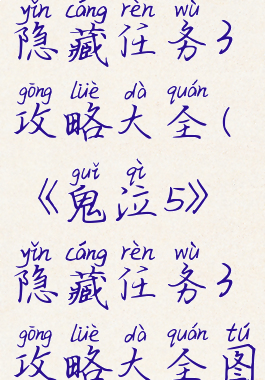 yǐn cáng rèn wù
隐藏任务3
gōng lüè dà quán
攻略大全(
guǐ qì
《鬼泣5》
yǐn cáng rèn wù
隐藏任务3
gōng lüè dà quán tú
攻略大全图